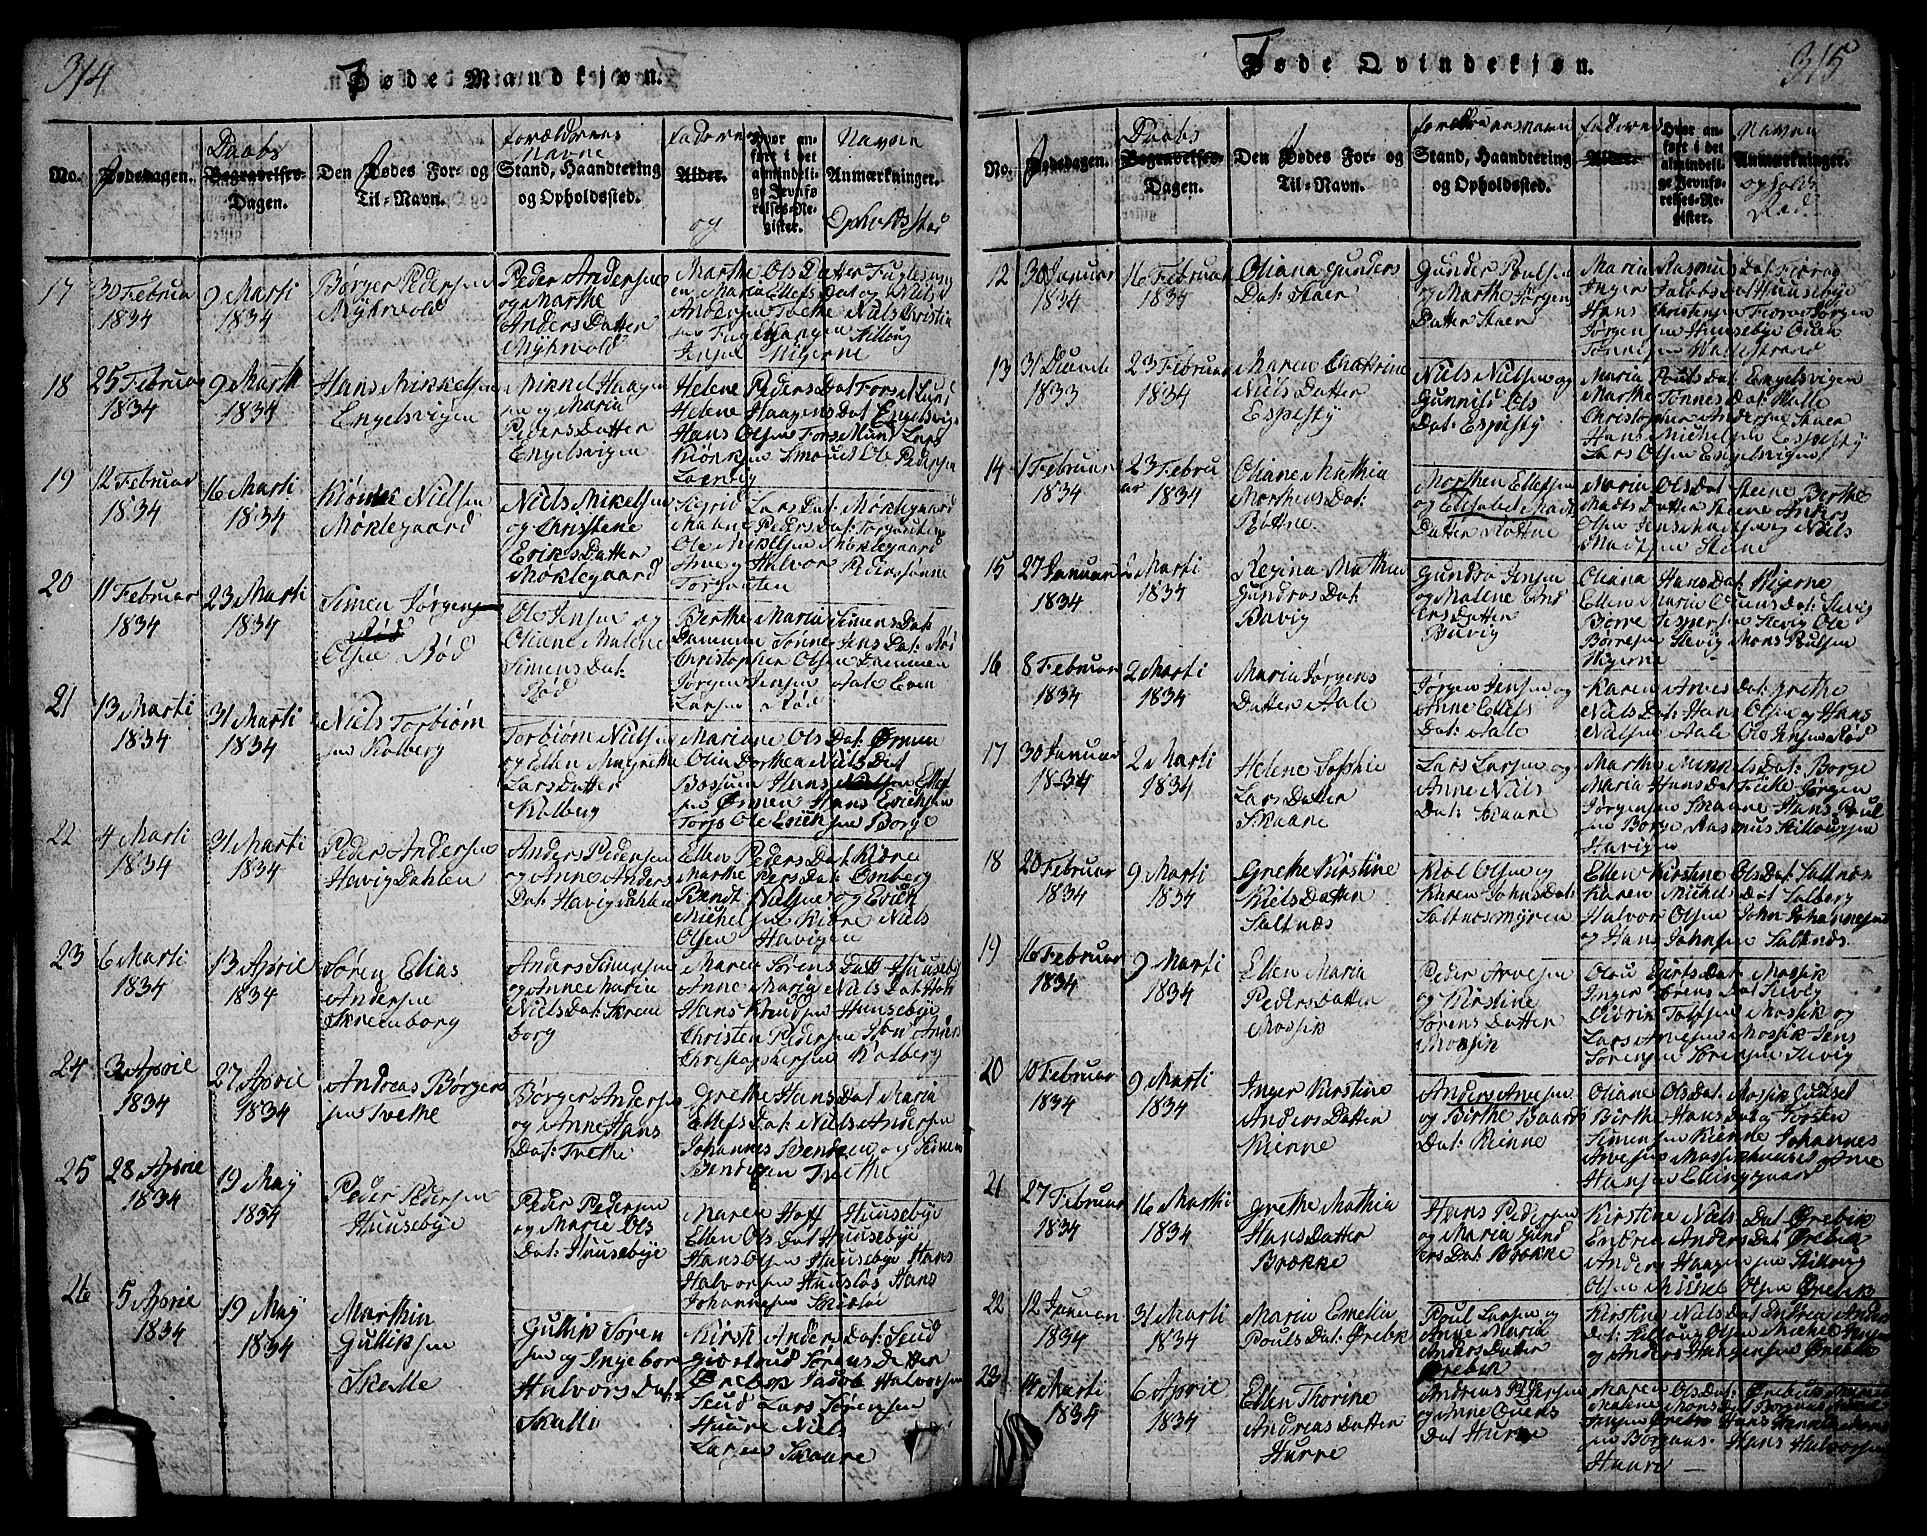 314
Fødde Mandkjøn.
No.
Fødsdagen.
Daabs
Begravelses-
Dagen.
Den Fødes For- og
Til-Navn.
forældrenes
Navne
Stand, Haandtering
og Opholdssted.
faderens
Alder.
og
Hvor an-
føre i det
almindeli-
ge Jevnfø-
relses-Re-
gister.
Navne
Anmærkninger.
Opholdsstad
17
30 Februar
1834
9 Marti
1834
Børger Pedersen
Myhrvold
Peder Andersen
og Marthe
Anders Datter
Myhrvold
Marthe Ols Datter Fuglevang
en Maria Ellefs Dat og Niels
Andersen Tvethe Niels Christia
sen Fuglevang Hillous
Jensen Kigerne
18
25 Februar
1834
9 Marti
1834
Hans Mikkelsen
Engelsvigen
Mikkel Haagen
sen og Maria
Peders Datter
Engelsvigen
Helene Peders Dat
Helene Haagens Dat Engelsvig
Hans Olsen Lars
Ole Pedersen
Lervig
19
12 Februar
1834
16 Marti
1834
Nielsen
Moklegaard
Niels Mikelsen
og Christene
Eriks Datter
Moklegaard
Sigrid Lars Dat Moklegaard
Malene Peders Dat: Torgauten
Ole Mikelsen Moklegaard
Arne og Halvor Pedersønne
Torgauten
20
11 Februar
1834
23 Marti
1834
Simen Jørgensen
Rød
Olsen Rød
Ole Jensen og
Oliane Malene
Simens Dat:
Rød
Berthe Maria Simens Dat:
Dammen Sørine Jens Dat: Rø
Christopher Olsen Dammen
Jørgen Jensen Aale Even
Larsen Rød
21
13 Marti
1834
31 Marti
1834
Niels Torbiøm
sen Kolberg
Torbiøm Nielsen
og Ellen Margrethe
Lars Datter
Kolberg
Mariane Ols Dat: Ørmen
Olia Dorthea Niels Dat
Hans Nielsen Ellef
sen Ørmen Hans Erichsen
Torp Ole Erichsen Borge
22
4 Marti
1834
31 Marti
1834
Peder Andersen
Hevig Dahlen
Anders Pedersen
og Anne Anders
Dat: Havigdahlen
Ellen Peders Dat Kiøre
Marthe Pers Dat Ømberg
Berndt Nielsen og Erich
Michelsen Kiøre Niels
Olsen Havigen
23
6 Marti
1834
13 Aprile
1834
Søren Elias
Andersen
Skrenborg
Anders Simensen
og Anne Maria
Niels Dat: Skrene
borg
Maren Sørens Datt Huuseby
Anne Maria Niels Dat
Hans Knudsen Huusebye
Christen Pedersen
Christophersen Kolberg
24
3 Aprile
1834
27 Aprile
1834
Andreas Børger
sen Tvethe
Børger Andersen
og Anne Hans
Dat: Tvethe
Grethe Hans Dat Maria
Ellefs Dat: Niels Andersen
Johannes Bentsen og Simen
Bentsen Tvethe
25
28 Aprile
1834
19 May
1834
Peder Pedersen
Huusebye
Peder Pedersen
og Marie Ols
Dat: Huusebye
Maren Hoff Huusebye
Ellen Ols Dat Huusebye
Hans Olsen Huusebye Hans
Halvorsen Huusløs Hans
Johannesen
26
5 Aprile
1834
19 May
1834
Marthin
Gulliksen
Skalle
Gullik Søren
sen og Ingebor
Halvors Dat:
Skalle
Kirsti Anders Dat: Seud
Sørens Datter
Ørebop Jacob Halvorsen
Seud Lars Sørensen
Huure Niels
Larsen Skaare
Fødde Qvindekjøn.
315
No.
Fødsdagen.
Daabs
Begravelses-
Dagen.
Den Fødes For- og
Til-Navn.
forældrenes navn
Stand, Haandtering
og Opholdssted.
faderens
Alder.
Hvor an-
føre i det
almindeli-
ge Jevnfø-
relses-Re-
gister.
Navne
Anmærkninger.
og Opholds
Stad
12
30 Januar
1834
16 Februar
1834
Oliana Gunders
Dat: Skaer
Gunder Poulsen
og Marthe Jørgen
Datter Skaer
Maria Rasmus Dat:
Inger Jakobs Dat Huusebye
Hans Christensen Jørgen
Jørgensen Huusebye Ouen
Tønnesen Wadestrand
13
31 Decemb
1833
23 Februar
1834
Maren Chatrine
Niels Datter
Espesty
Niels Nielsen og
Gunnild Ols
Dat: Espesty
Maria Pouls Dat Engelsvigen
Marthe Tønnes Dat: Walle
Christopher Andersen Skaer
Hans Michelsen Espesty
Lars Olsen Engelsvigen
14
1 Februar
1834
23 Febru
ar 1834
Oliane Mathia
Morthens Dat:
Røtne
Morthen Ellefsen
og Elisabet Mads
Datter Røttne
Maria Ols Dat: Steene Berthe
Mads Datter Steene Anders
Olsen Jens Madsen og Niels
Madsen Steene
15
27 Januar
1834
2 Marti
1834
Regina Mathia
Gundros Dat:
Bovig
Gundro Jensen
og Malene And
ers Datter
Buvig
Oliana Hans Dat: Kigerne
Ellen Maria Ouens Dat: Slevig
Børre Jespersen Slevig Ole
Børresen Slevig Mons Poulsen
Kigerne
16
8 Februar
1834
2 Marti
1834
Maria Jørgens
Datter Aale
Jørgen Jensen og
Anne Ellefs
Dat: Aale
Karen Arnes Dat: Grethe
Niels Dat: Hans Olsen og Hans
Nielsen Aale Ole Jensen Rød
17
30 Januar
1834
2 Marti
1834
Helene Sophie
Lars Datter
Skaare
Lars Larsen og
Anne Niels
Dat: Skaare
Marthe Mikkels Dat: Borge
Maria Hans Dat Jørgen
Jørgensen Skaare Hans Poul
sen Borge Rasmus Hillougsen
Havigen
18
20 Februar
1834
9 Marti
1834
Grethe Kirstine
Kiels Datter
Saltnæs
Kiøl Olsen og
Karen Johns Dat:
Saltnæsmyren
Ellen Kirstine Ols Dat: Saltnæs
Karen Michel Dat Solberg
Halvor Olsen John Johannesen
og Hans Johnsen Saltnæs
19
16 Februar
1834
9 Marti
1834
Ellen Maria
Peders Datter
Mossik
Peder Arvesen
og Kirstine
Sørens Datter
Mossik
Inger Sørens Dat Slevig
Didrik Tolfsen Mossik og
Lars Arvesen Mossik Jens
Sørensen Slevig
20
10 Februar
1834
9 Marti
1834
Inger Kirstine
Anders Datter
Kienne
Anders Arvesen
og Birthe Baards
Dat: Kienne
Oliane Ols Dat: Mossik
Birthe Hans Dat og Torsten
Simensen Kienne Johannes
Arvesen Mossik Arne
Hansen Ellingsgaard
21
27 Februar
1834
16 Marti
1834
Grethe Mathia
Hans Datter
Brække
Hans Pedersen
og Maria Gund
ers Dat: Brekke
Kirstine Niels Dat Ørebik
Andrea Anders Dat Ørebik
Anders Haagensen Hilloug
Olsen Mickel Olsen Ørebek
22
12 Januar
1834
31 Marti
1834
Maria Emelia
Pouls Dat: Ørebik
Poul Larsen og
Anne Maria
Anders Datter
Ørebik
Kirstine Niels Dat Andrea Anders
Dat: Hilloug Olsen Michel
og Anders Haagensen Ørebek
23
14 Marti
1834
6 Aprile
1834
Ellen Thorine
Andreas Datter
Hurre
Andreas Pedersen
og Anne Ouens
Dat Hurre
Maren Ols Dat: Ørebek
Malene Mons Dat
Hans
Hans Halvorsen
Haure